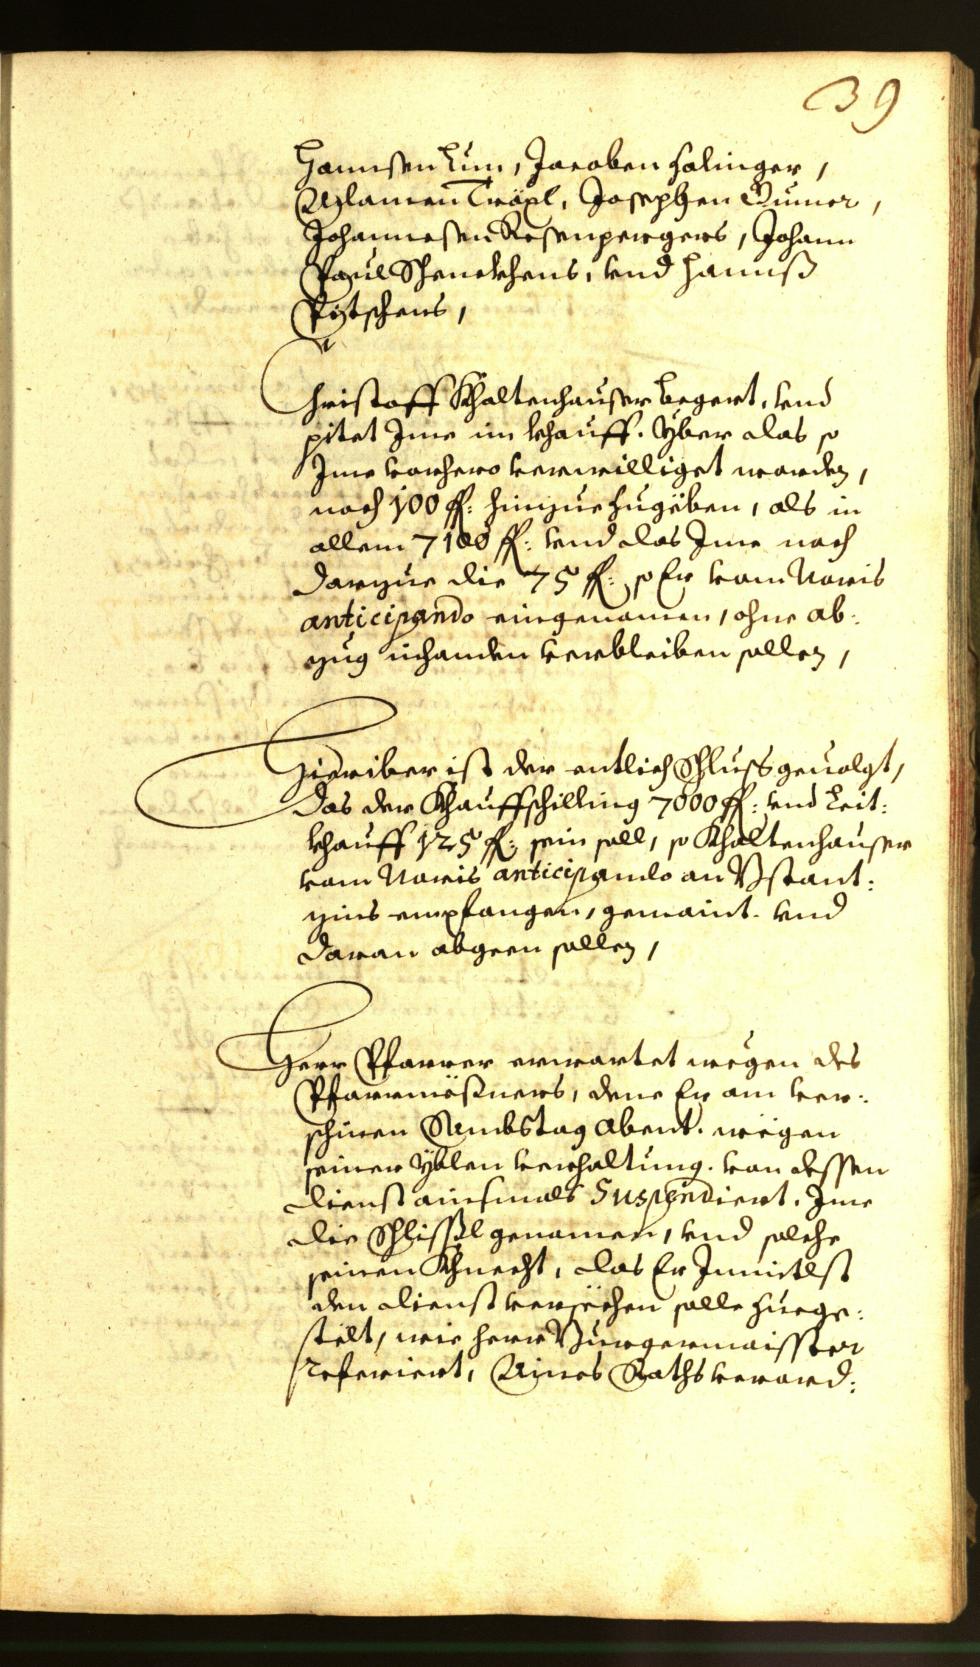 39
Hannsen Kun, Jacoben Holinger,
Adamen Träxl, Josephen Gumer,
Johannesen Rosenpergers, Johann
Paul Schenckhens, vnd Hannß
Pötschens,
Christoff Khaltenhauser begert, vnd
pitet Ime im khauff. Yber das so
Ime vorhero verwilliget worden,
noch 100 fl: hinzue zugeben, als in
allem 7100 fl: vnd das Ime noch
darzue die 75 fl: so Er vom Noris
anticipando eingenomen, ohne ab:
zug zuhanden verbleiben sollen,
Hierüber ist der entlich Schluss geuolgt,
Das der Khauffschilling 7000 fl: vnd Leit:
khauff 125 fl: sein soll, so Khaltenhauser
vom Noris anticipando an Bstant:
zins empfangen, gemaint. vnd
daran abgeen sollen,
Herr Pfarrer erwartet wegen des
Pfarrmößners, deme Er am ver:
schinen Sambstag Abent. wegen
seiner yblen verhaltung. von dessen
dienst ainsmals Suspendiert. Ime
die Schlissl genomen, vnd solche
seinen Khnecht, das Er Inmitlst
den dienst versechen solle zuege:
stelt, wie herr Burgermaisster
referiert, Aines Raths verord: